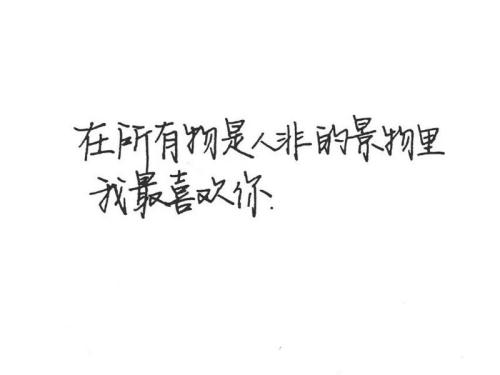 在所有物是人非的景物里
我最喜欢你.